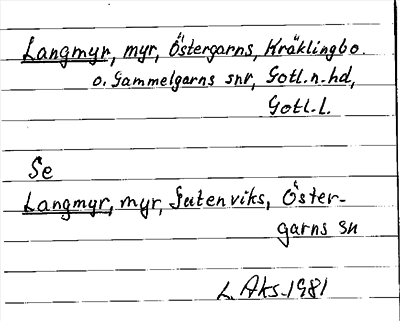 Langmyr, myr, Östergarns, Kräklingbo
o. Gammelgarns snr, Gotl. n. hd,
Gotl. l.
Se
Langmyr, myr, Gutenviks, Öster-
garns sn
L. Aks. 1981